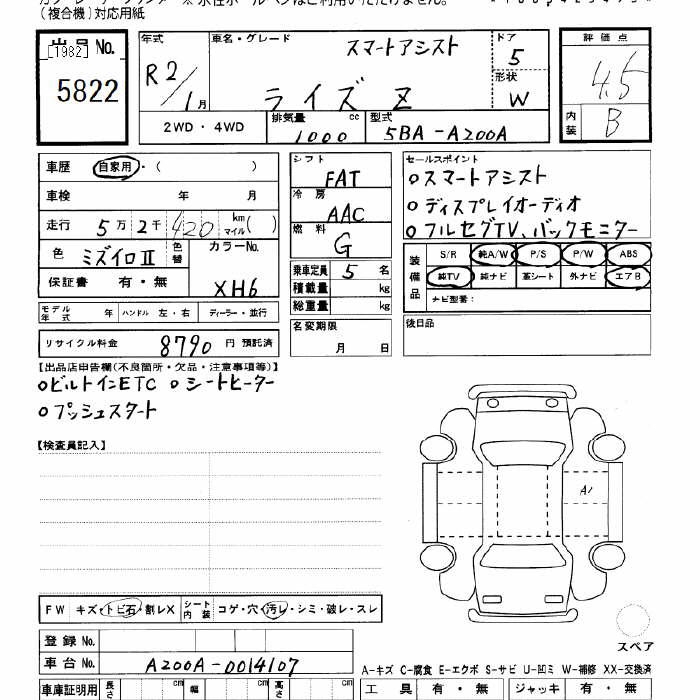 (複合機)対応用紙
出品No.
[1982]
5822
年式
R2/1月
車名・グレード
スマートアシスト
ライズ Z
ドア
5
形状
W
評価点
4.5
内装
B
2WD・4WD
排気量 cc
1000
型式
5BA-A200A
車歴 自家用・( )
車検 年 月
走行 5万2千420 km マイル( )
色 ミズイロⅡ 色替 カラーNo.
XH6
保証書 有・無
モデル年式 年 ハンドル 左・右 ディーラー・並行
リサイクル料金 8790 円 預託済
シフト
FAT
冷房
AAC
燃料
G
乗車定員 5 名
積載量 kg
総重量 kg
名変期限
月 日
セールスポイント
○スマートアシスト
○ディスプレイオーディオ
○フルセグTV、バックモニター
装備品
S/R 純A/W P/S P/W ABS
純TV 純ナビ 革シート 外ナビ エアB
ナビ型番:
後日品
【出品店申告欄(不良箇所・欠品・注意事項等)】
○ビルトインETC ○シートヒーター
○プッシュスタート
【検査員記入】
A1
FW キズ・トビ石・割レX シート内装 コゲ・穴・汚レ・シミ・破レ・スレ
スペア
登録No.
車台No. A200A-0014107
A-キズ C-腐食 E-エクボ S-サビ U-凹ミ W-補修 XX-交換済
車庫証明用 長さ cm 幅 cm 高さ cm
工具 有・無 ジャッキ 有・無